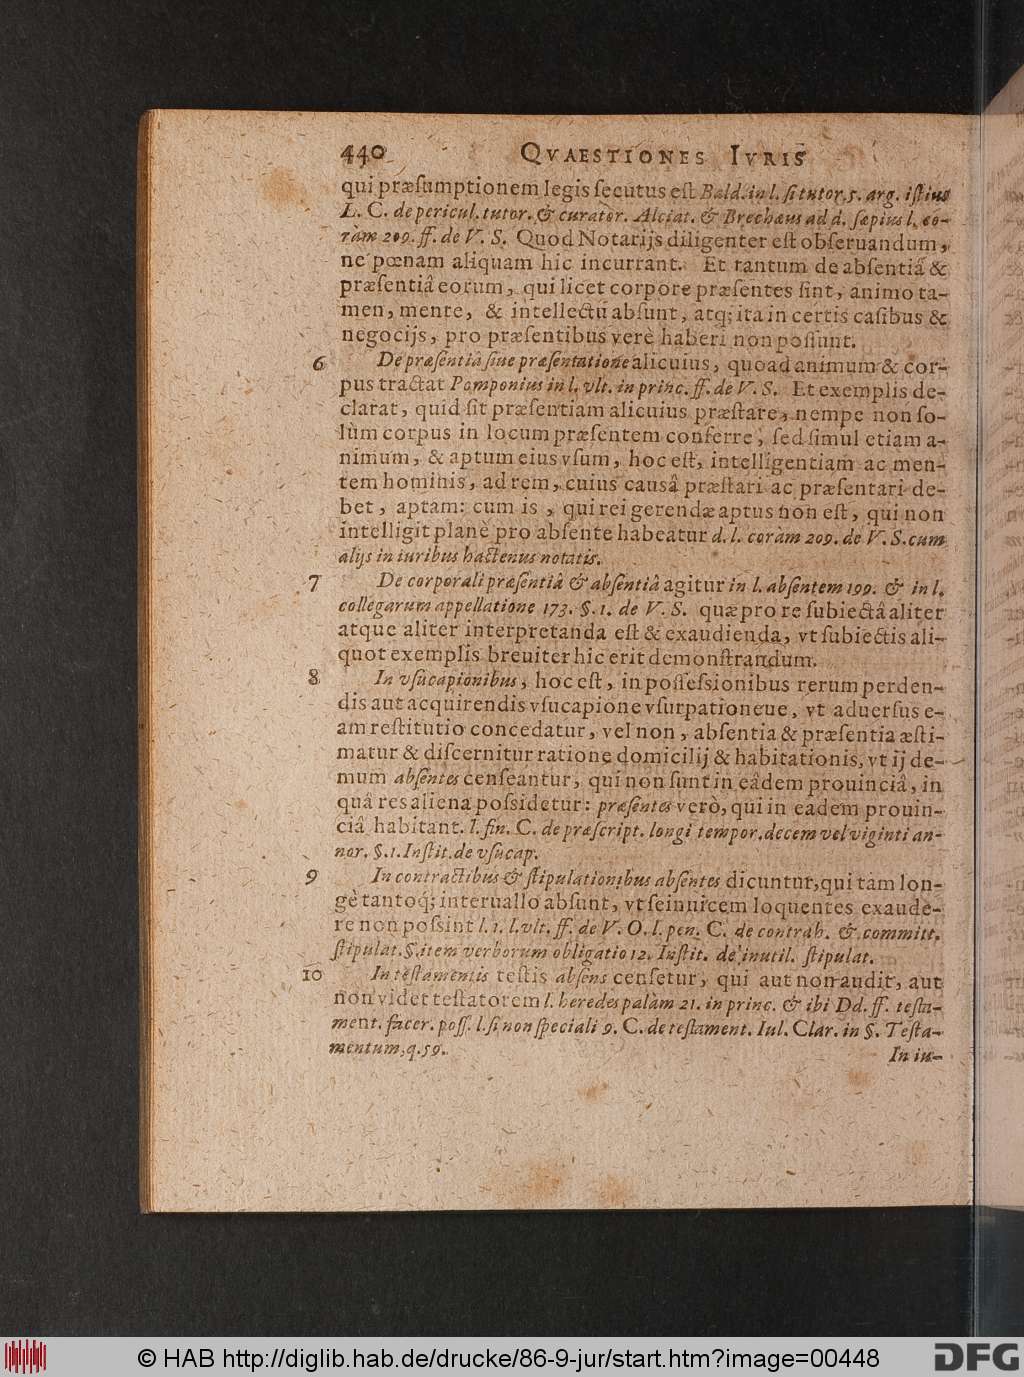 440 QVAESTIONES IVRIS
qui præſumptionem legis ſecutus eſt Bald. in l. ſi tutor. 5. arg. iſtius
L. C. de pericul. tutor. & curator. Alciat. & Brechæus ad d. ſæpius l. co-
ràm 209. ff. de V. S. Quod Notarijs diligenter eſt obſeruandum,
ne pœnam aliquam hic incurrant. Et tantum de abſentiâ &
præſentiâ eorum, qui licet corpore præſentes ſint, animo ta-
men, mente, & intellectu abſunt, atq; ita in certis caſibus &
negocijs, pro præſentibus verè haberi non poſſunt.
6 De præſentiâ ſiue præſentatione alicuius, quoad animum & cor-
pus tractat Pomponius in l. vlt. in princ. ff. de V. S. Et exemplis de-
clarat, quid ſit præſentiam alicuius præſtare, nempe non ſo-
lùm corpus in locum præſentem conferre, ſed ſimul etiam a-
nimum, & aptum eius vſum, hoc eſt, intelligentiam ac men-
tem hominis, ad rem, cuius causâ præſtari ac præſentari de-
bet, aptam: cum is, qui rei gerendæ aptus non eſt, qui non
intelligit planè pro abſente habeatur d. l. coràm 209. de V. S. cum
alijs in iuribus hactenus notatis.
7 De corporali præſentiâ & abſentiâ agitur in l. abſentem 199. & in l.
collegarum appellatione 173. §. 1. de V. S. quæ pro re ſubiectâ aliter
atque aliter interpretanda eſt & exaudienda, vt ſubiectis ali-
quot exemplis breuiter hic erit demonſtrandum.
8 In vſucapionibus, hoc eſt, in poſſeſsionibus rerum perden-
dis aut acquirendis vſucapione vſurpationeue, vt aduerſus e-
am reſtitutio concedatur, vel non, abſentia & præſentia æſti-
matur & diſcernitur ratione domicilij & habitationis, vt ij de-
mum abſentes cenſeantur, qui non ſunt in eâdem prouinciâ, in
quâ res aliena poſsidetur: præſentes verò, qui in eadem prouin-
ciâ habitant. l. fin. C. de præſcript. longi tempor. decem vel viginti an-
nor. §. 1. Inſtit. de vſucap.
9 In contractibus & ſtipulationibus abſentes dicuntur, qui tàm lon-
gè tantoq́; interuallo abſunt, vt ſeinuicem loquentes exaude-
re non poſsint l. 1. l. vlt. ff. de V. O. l. pen. C. de contrah. & committ.
ſtipulat. §. item verborum obligatio 12. Inſtit. de inutil. ſtipulat.
10 In teſtamentis teſtis abſens cenſetur, qui aut non audit, aut
non videt teſtatorem l. heredes palàm 21. in princ. & ibi Dd. ff. teſta-
ment. facer. poſſ. l. ſi non ſpeciali 9. C. de teſtament. Iul. Clar. in §. Teſta-
mentum, q. 59.
In iu-
© HAB http://diglib.hab.de/drucke/86-9-jur/start.htm?image=00448
DFG